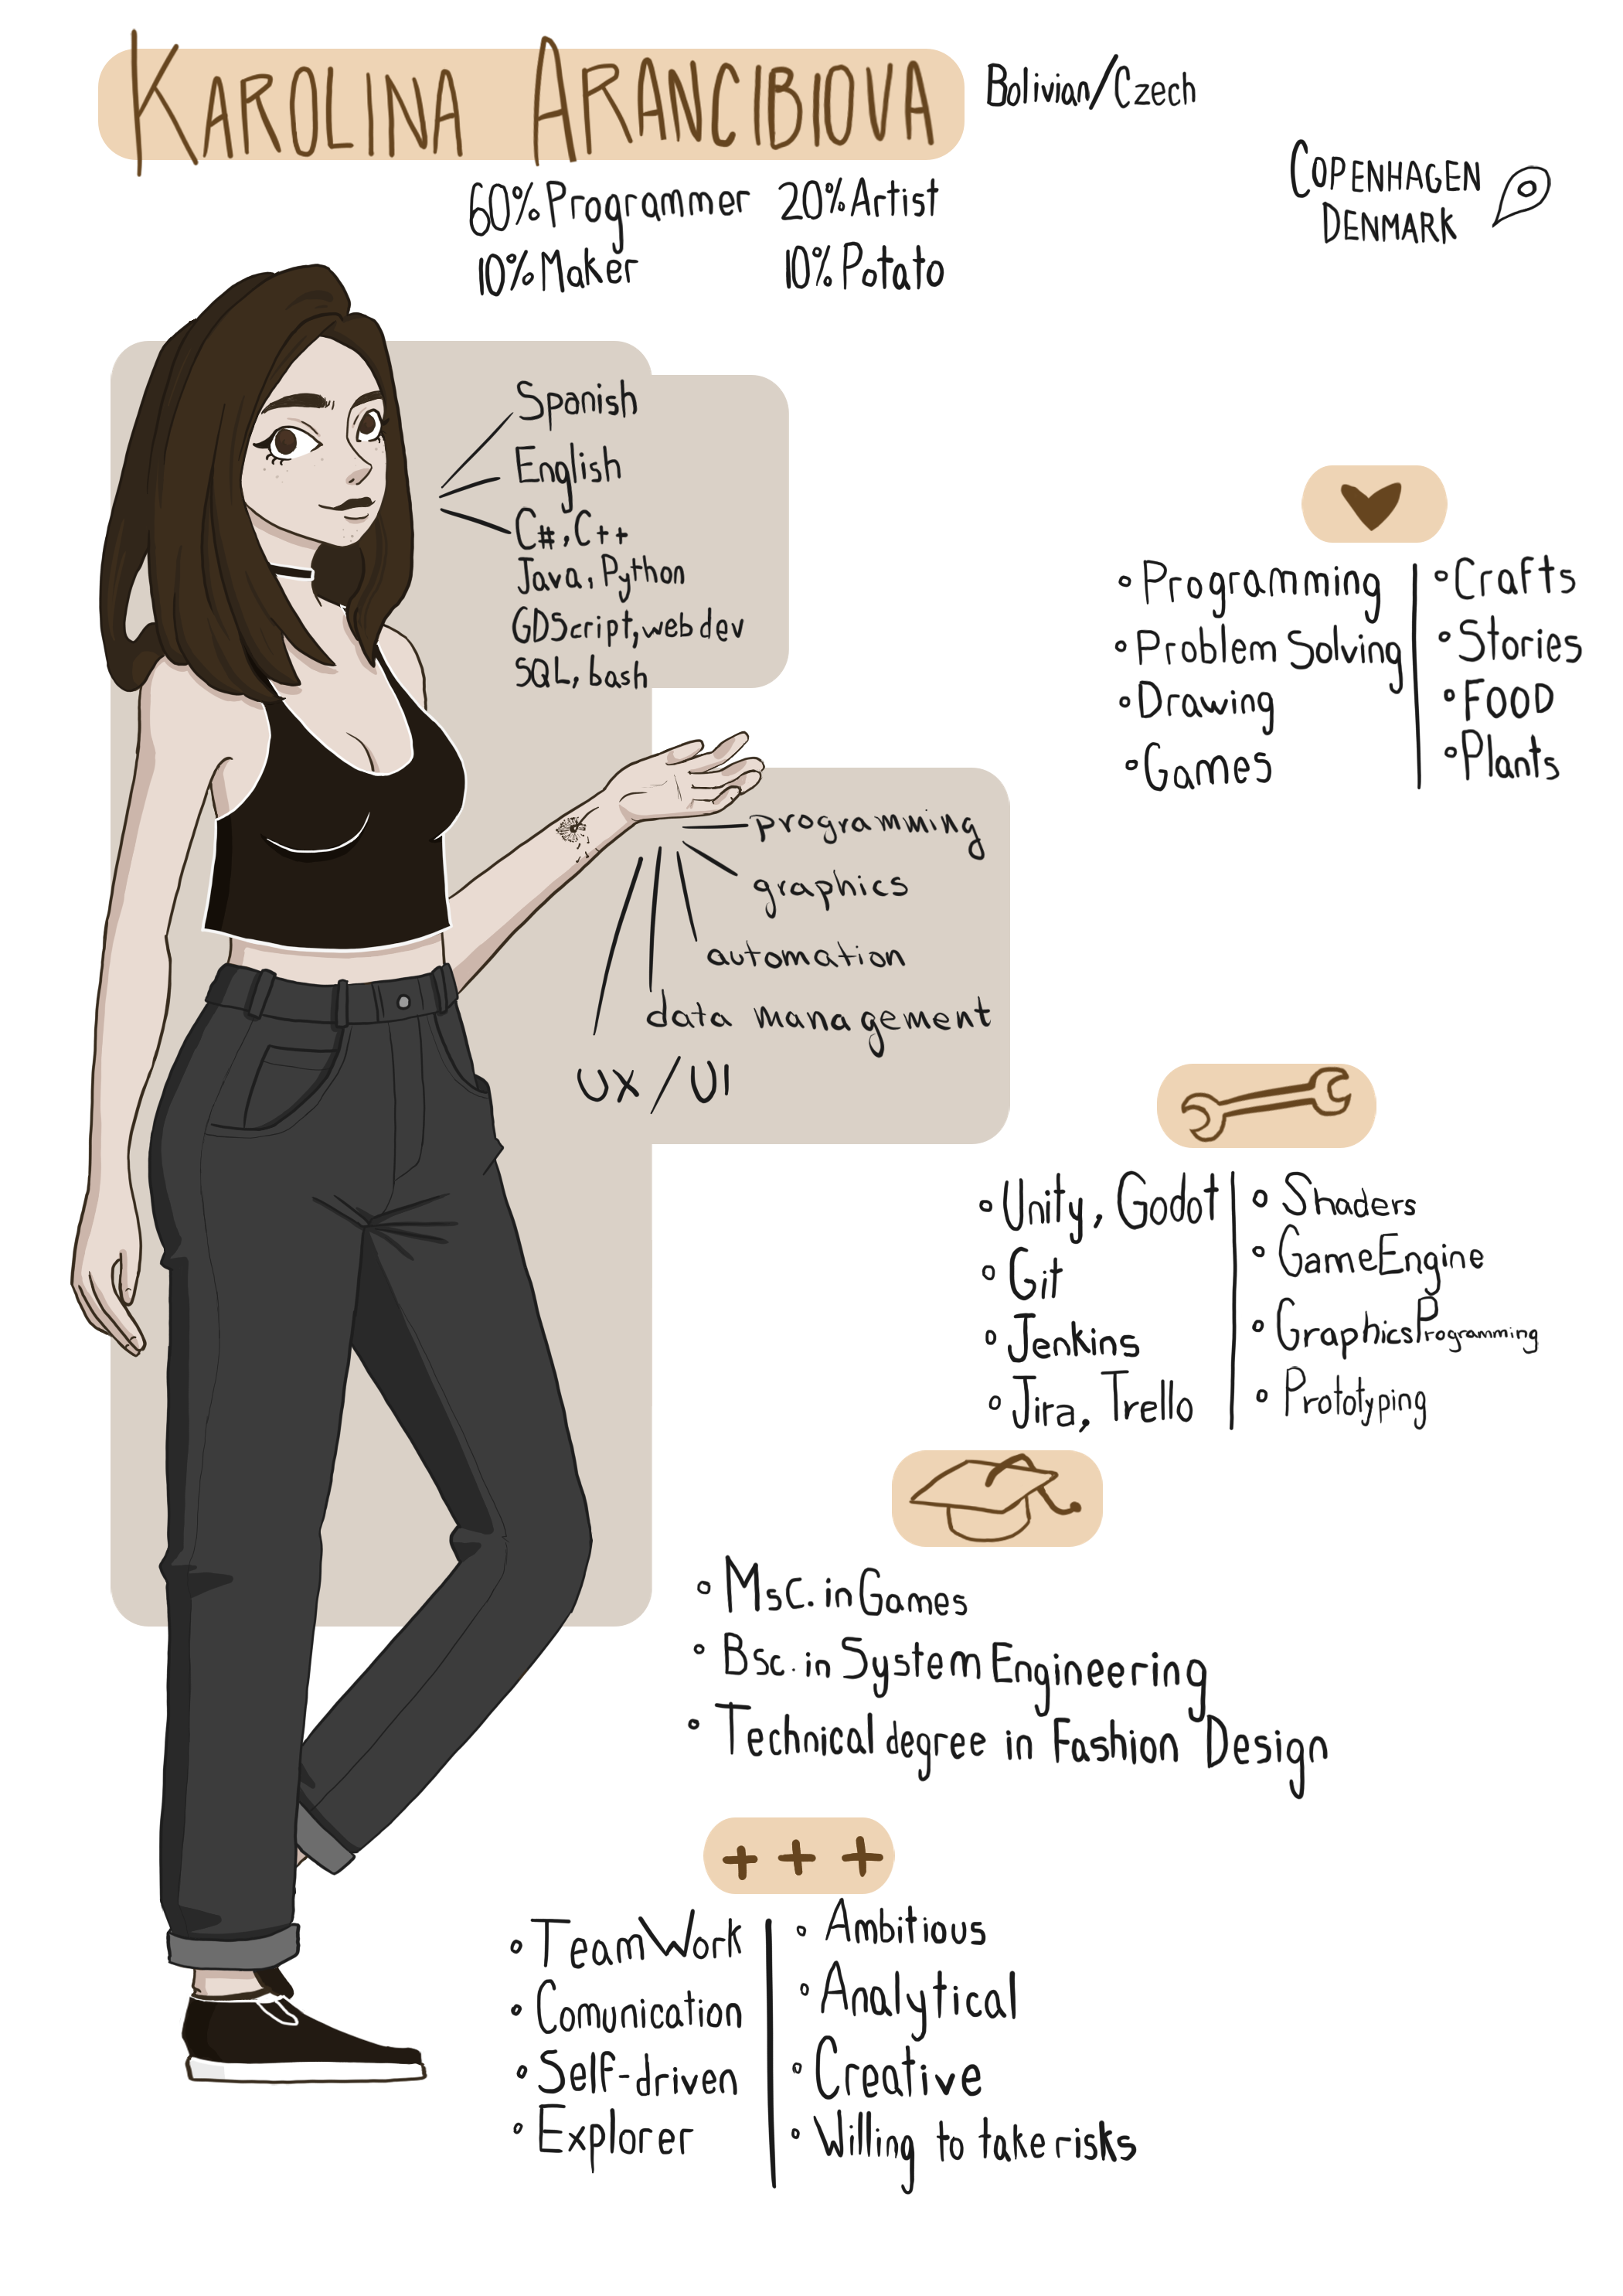 KAROLINA ARANCIBIOVA
Bolivian/Czech
COPENHAGEN
DENMARK
60% Programmer 20% Artist
10% Maker 10% Potato
Spanish
English
C#, C++
Java, Python
GDScript, web dev
SQL, bash
programming
graphics
automation
data management
UX / UI
Programming
Problem Solving
Drawing
Games
Crafts
Stories
FOOD
Plants
Unity, Godot
Git
Jenkins
Jira, Trello
Shaders
GameEngine
GraphicsProgramming
Prototyping
MsC. in Games
Bsc. in System Engineering
Technical degree in Fashion Design
+ + +
TeamWork
Comunication
Self-driven
Explorer
Ambitious
Analytical
Creative
Willing to take risks